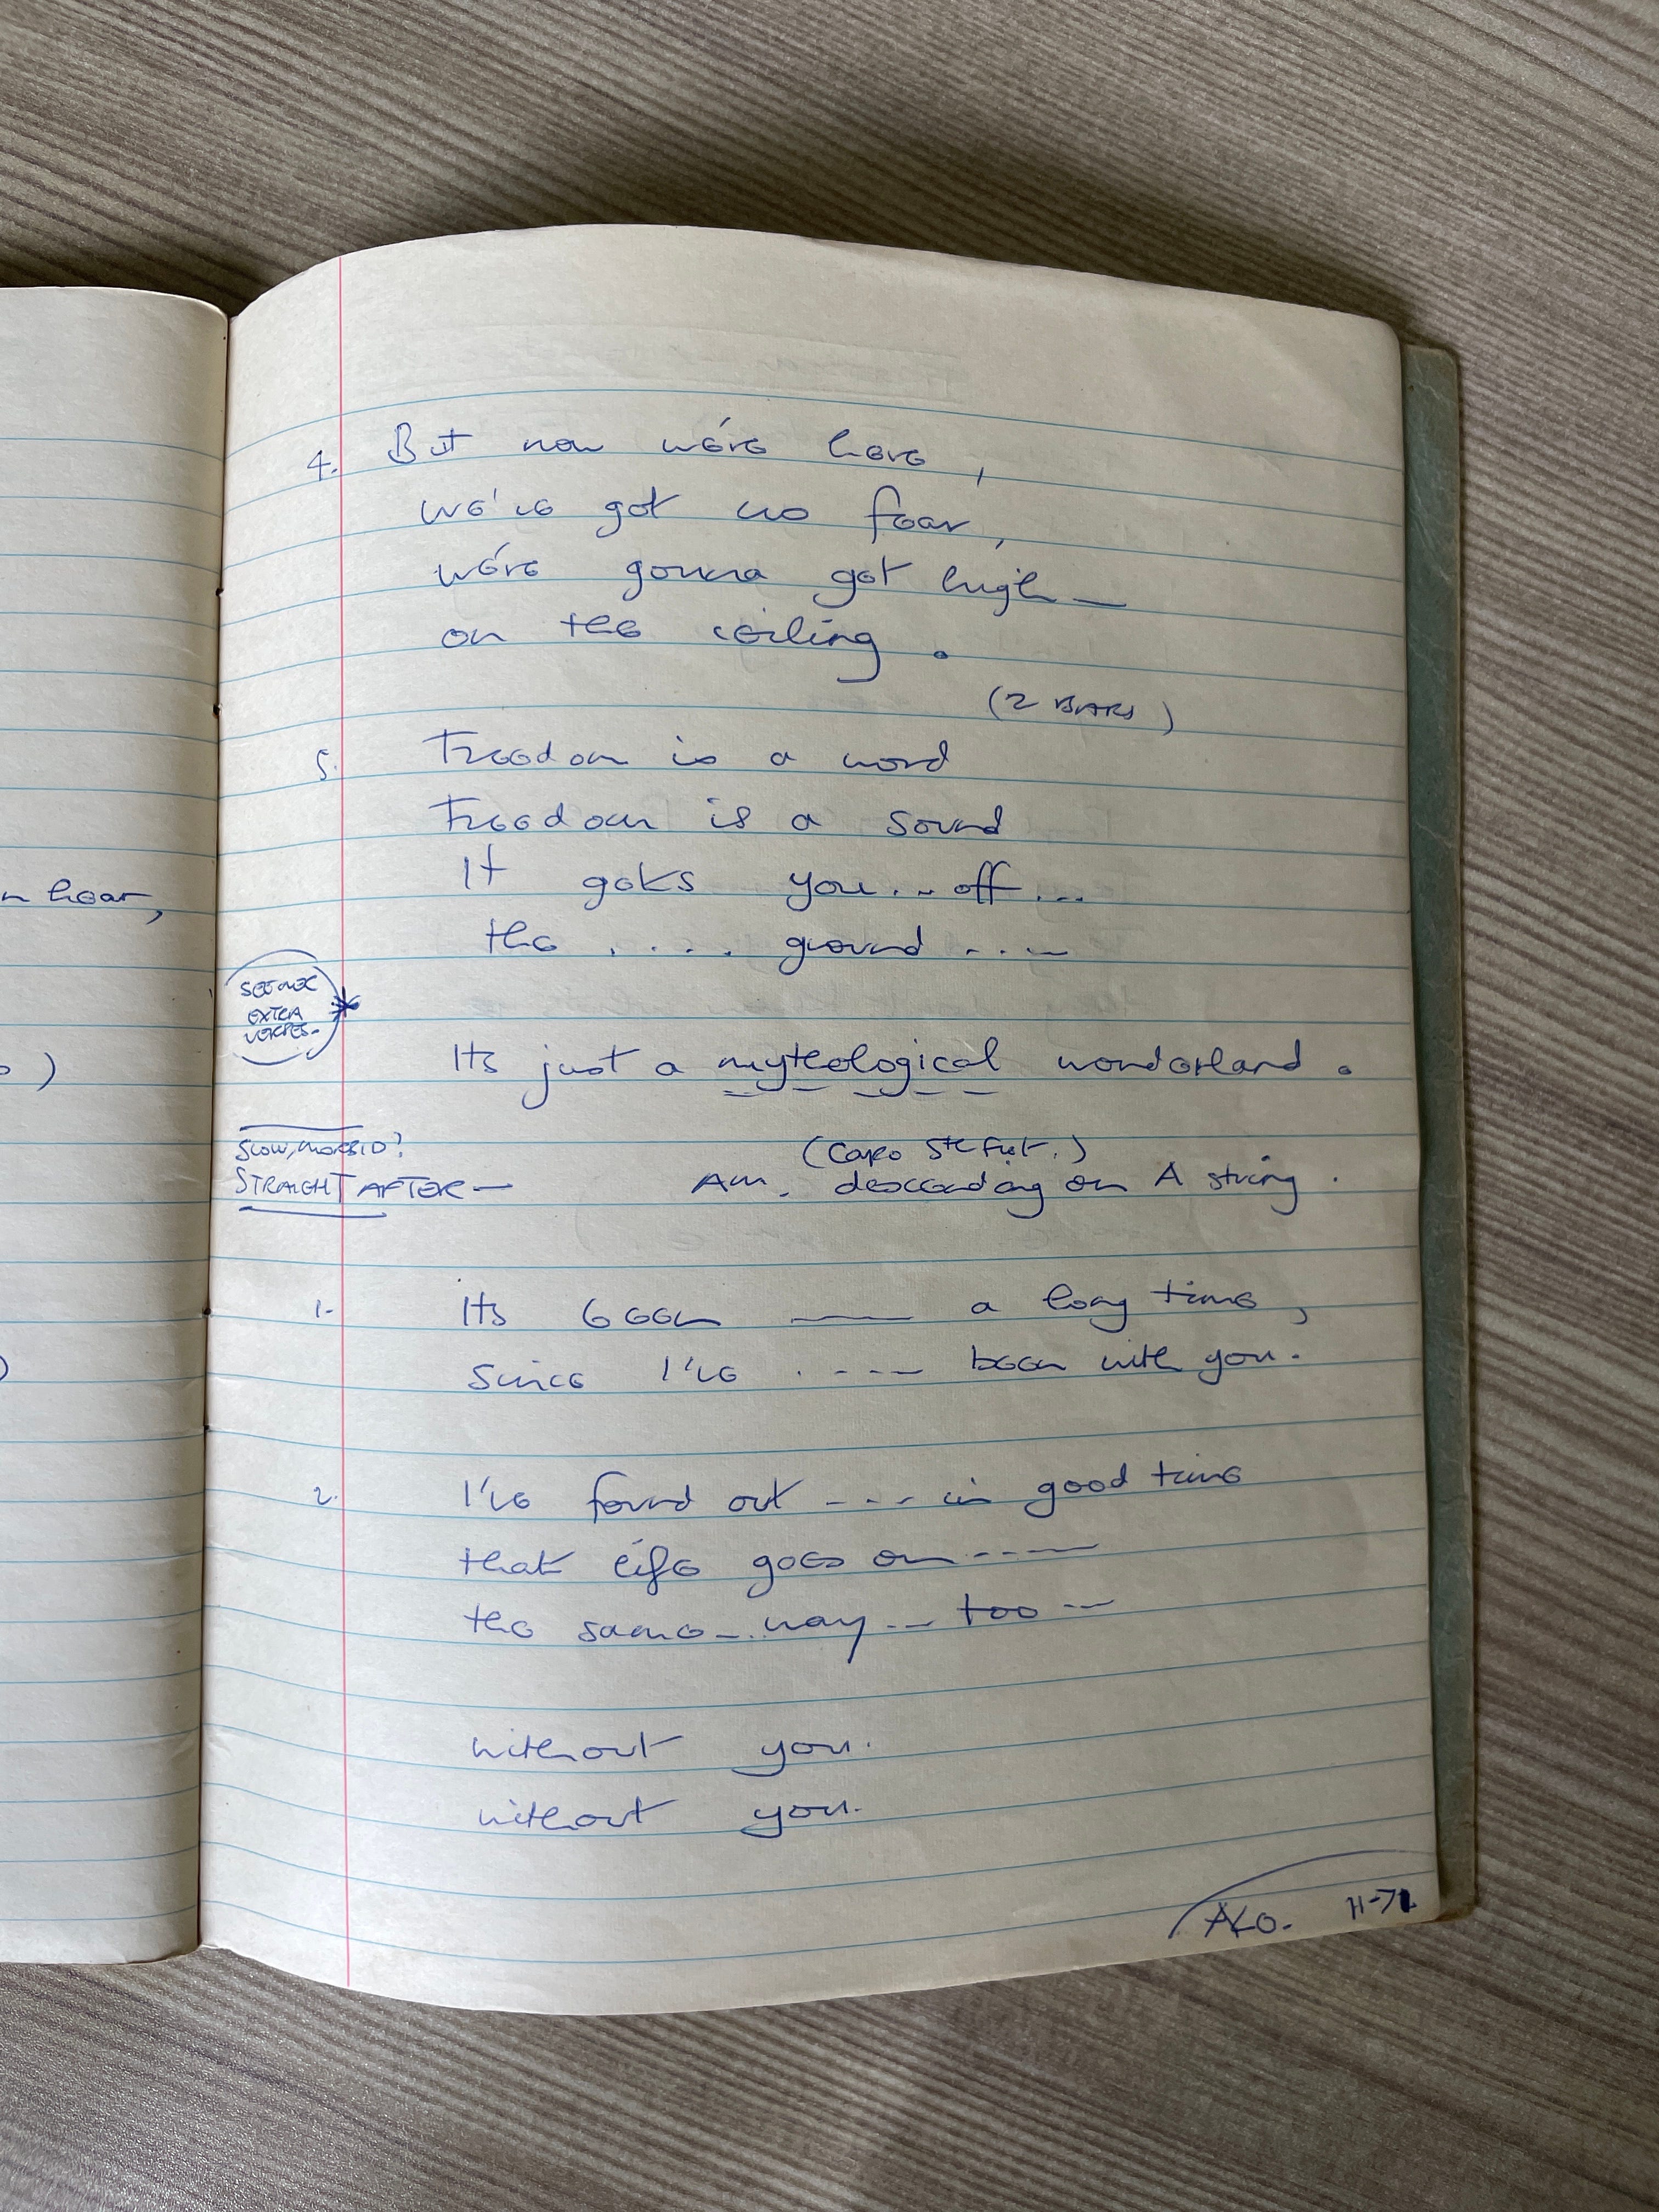 n hear,
)
)
4. But now we're here,
we've got no fear,
we're gonna get high —
on the ceiling.
(2 BARS)
5. Freedom is a word
Freedom is a sound
It gets you... off...
the .... ground ....
EXTRA
VERSES -
Its just a mythological wonderland.
SLOW, MORBID?
(Capo 5th fret.)
STRAIGHT AFTER — Am. descending on A string.
1. Its been —— a long time,
since I've .... been with you.
2. I've found out ---- in good time
that life goes on ----
the same -- way -- too --
without you.
without you.
11-71